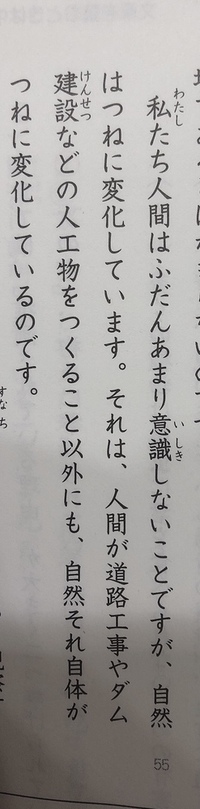 私たち人間はふだんあまり意識しないことですが、自然
はつねに変化しています。それは、人間が道路工事やダム
建設などの人工物をつくること以外にも、自然それ自体が
つねに変化しているのです。
55